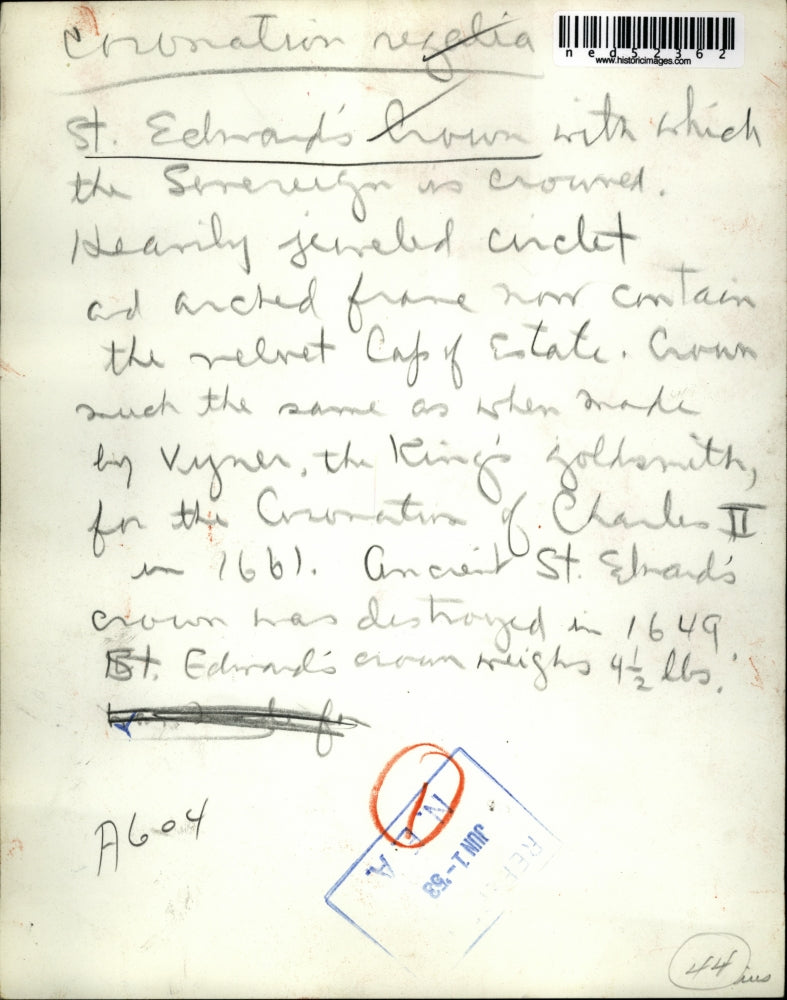 Coronation regalia
ned52362
www.historicimages.com
St. Edward's Crown with which
the Sovereign is crowned.
Heavily jeweled circlet
ad arched frame now contain
the velvet Cap of Estate. Crown
much the same as when made
by Vyner, the King's goldsmith,
for the Coronation of Charles II
in 1661. Ancient St. Edward's
crown was destroyed in 1649
St. Edward's crown weighs 4½ lbs.
A604
N.E.A.
JUN 1-'53
44